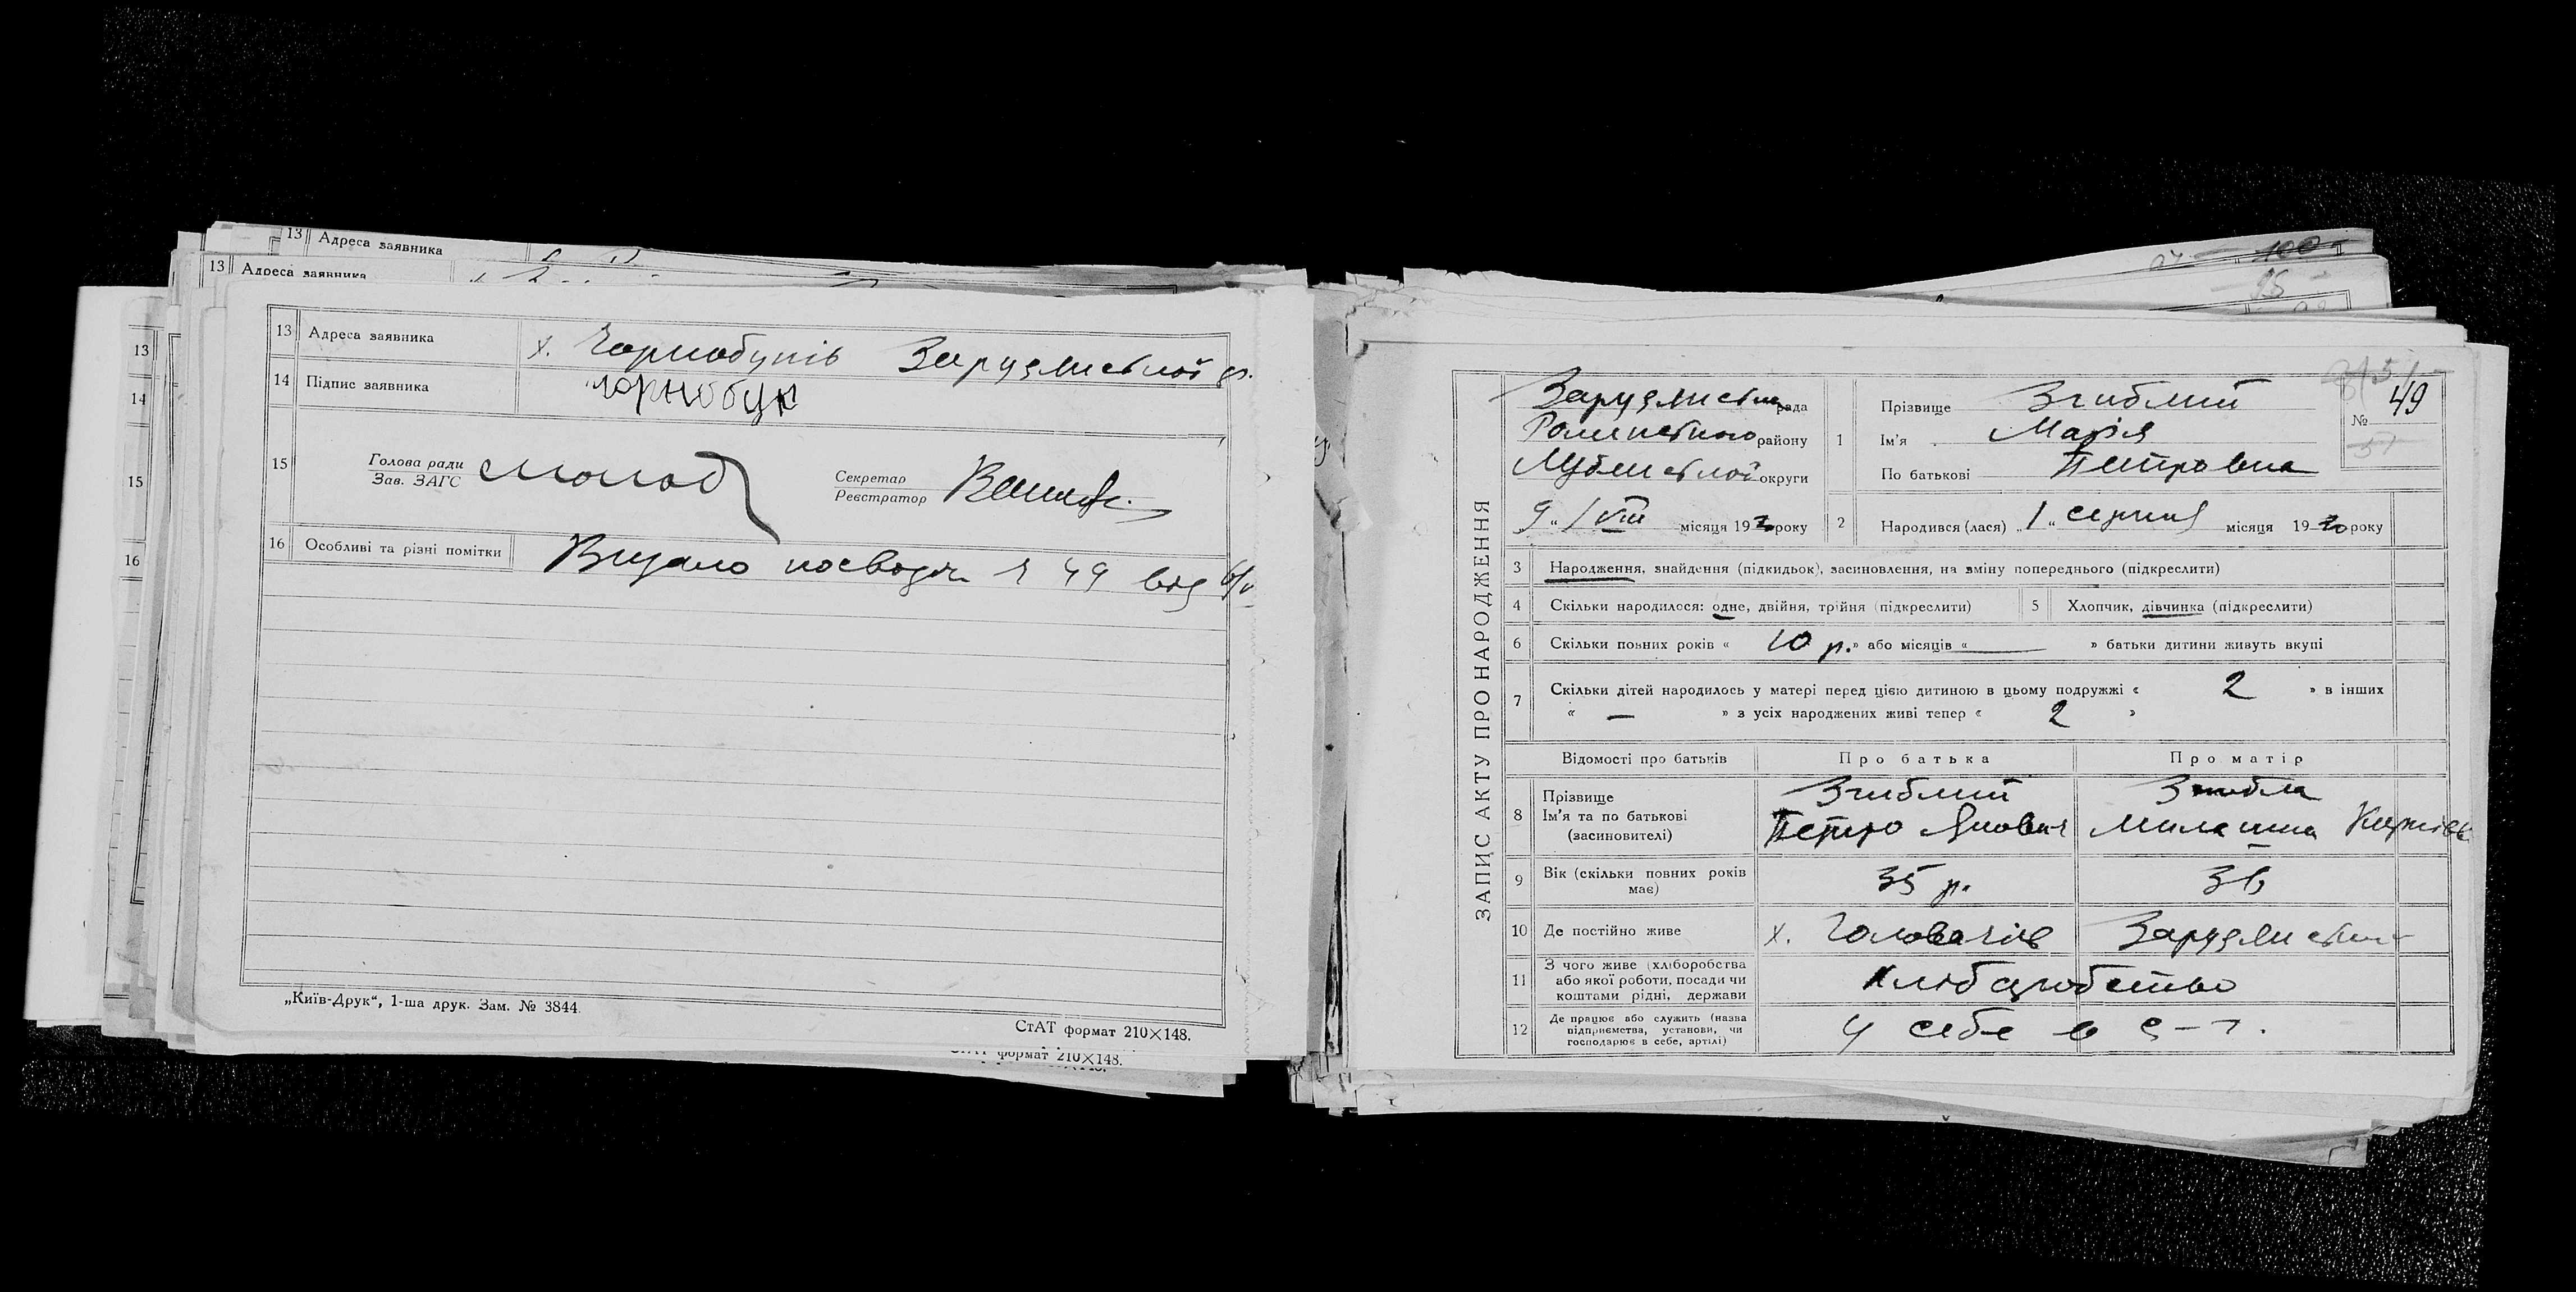 13 Адреса заявника
13 Адреса заявника
13 Адреса заявника х. Чорнобуків Зарудянської
14 Підпис заявника Чорнобук
15 Голова ради
Зав. ЗАГС
Секретар
Реєстратор
16 Особливі та різні помітки Видано посвідч 49 від
„Київ-Друк“, 1-ша друк. Зам. № 3844
СтАТ формат 210×148.
СтАТ формат 210×148.
13
14
15
16
100
95
ЗАПИС АКТУ ПРО НАРОДЖЕННЯ
рада
Роменського району
округи
9 " / VIII місяця 1930 року
№ 49
51
1 Прізвище Згиблий
Ім'я Марія
По батькові Петровна
2 Народився (лася) „ 1 “ серпня місяця 1930 року
3 Народження, знайдення (підкидьок), засиновлення, на зміну попереднього (підкреслити)
4 Скільки народилося: одне, двійня, трійня (підкреслити) 5 Хлопчик, дівчинка (підкреслити)
6 Скільки повних років « 10 р. » або місяців « — » батьки дитини живуть вкупі
7 Скільки дітей народилось у матері перед цією дитиною в цьому подружжі « 2 » в інших
« — » з усіх народжених живі тепер « 2 »
Відомості про батьків Про батька Про матір
8 Прізвище
Ім'я та по батькові
(засиновителі)
Згиблий
Петро Якович
Згибла
9 Вік (скільки повних років має) 35 р. 36
10 Де постійно живе х. Головачів
11 З чого живе (хліборобства або якої роботи, посади чи коштами рідні, держави хліборобство
12 Де працює або служить (назва підприємства, установи, чи господарює в себе, артілі) у себе в с-г.